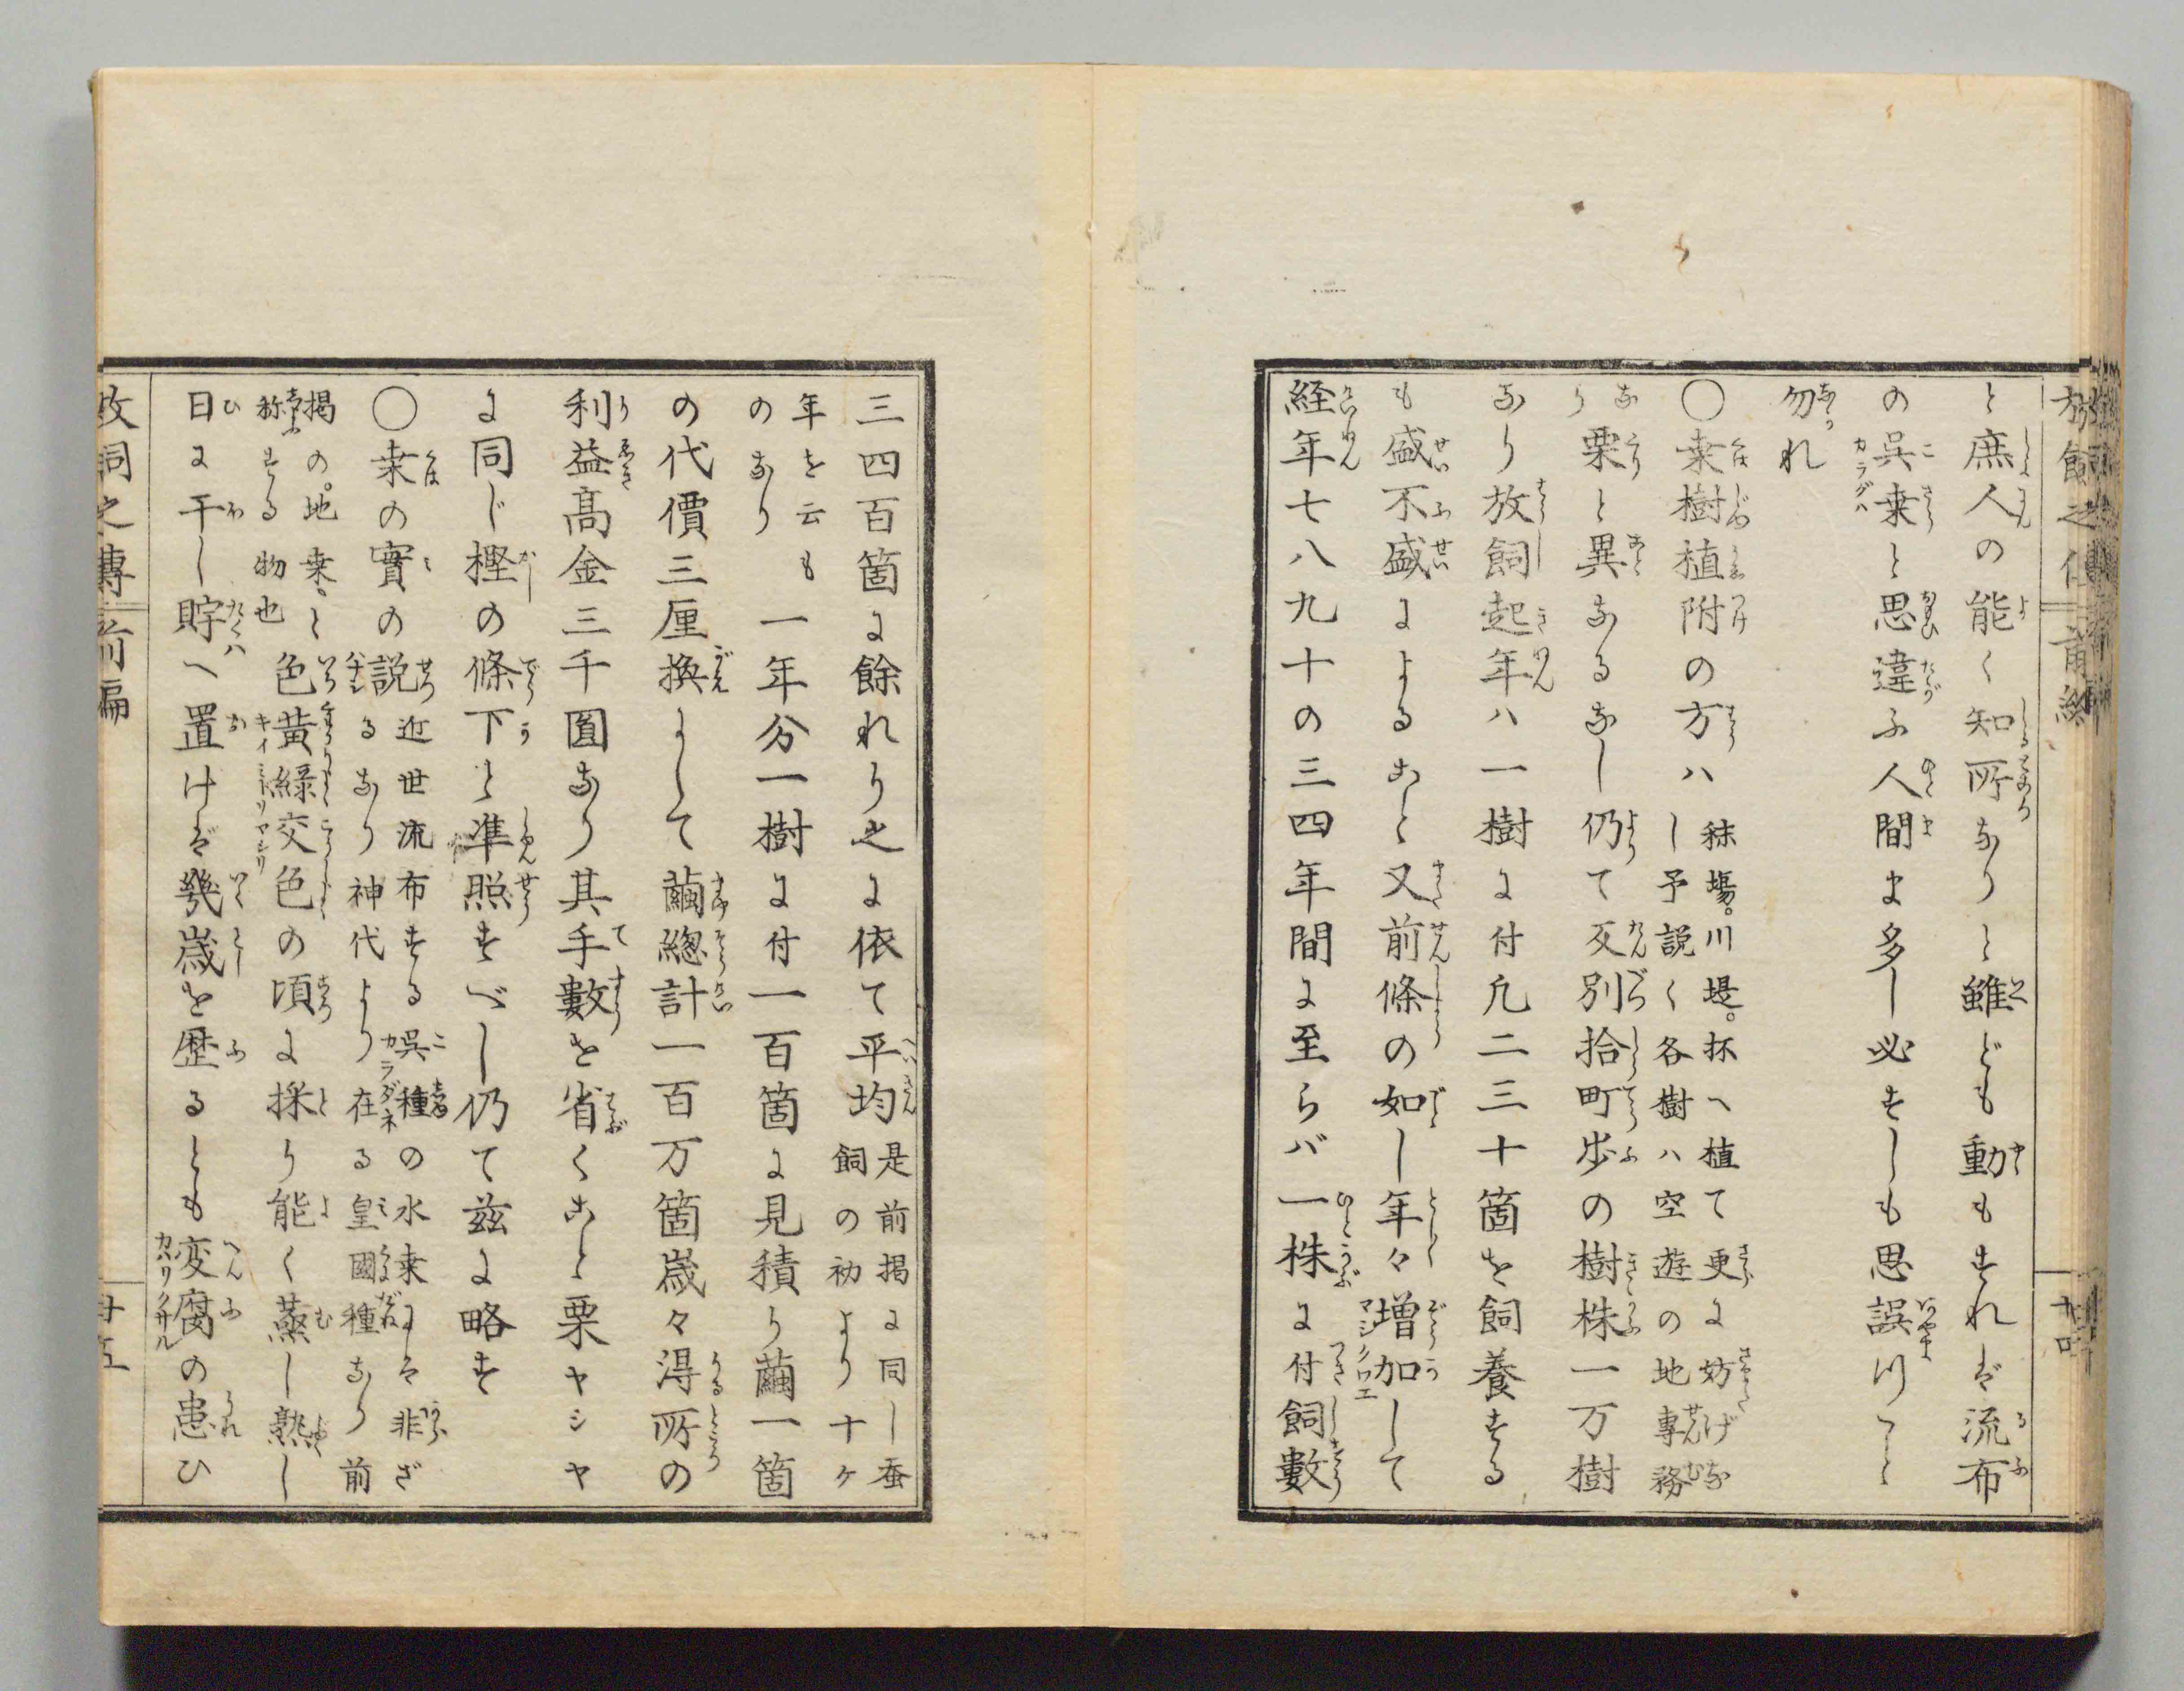 と庶人の能く知所なりと雖ども動もすれば流布
の呉桒と思違ふ人間ま多し必ずしも思誤りこと
勿れ
〇桒樹植附の方ハ秣塲。川堤。抔へ植て更に妨げな
し予説く各樹ハ空遊の地專務
り栗と異なるなし仍て反別拾町歩の樹株一万樹
なり放飼起年ハ一樹に付凡二三十箇を飼養する
も盛不盛によること又前條の如し年々増加して
経年七八九十の三四年間に至らバ一株に付飼數
三四百箇に餘れり之に依て平均是前掲に同し蚕
飼の初より十ヶ
年を云も
のなり
一年分一樹に付一百箇に見積り繭一箇
の代價三厘換にして繭總計一百万箇歳々淂所の
利益髙金三千圓なり其手數を省くこと栗ヤシヤ
に同じ樫の條下と準照すべし仍て兹に略す
〇桒の實の説近世流布する呉種の水桒にそ非ざ
るなり神代より在る皇國種なり前
掲の。地桒と
称する物也
色黄緑交色の頃に採り能く蒸し熟し
日に干し貯へ置けば幾歳を歴るとも変腐の患ひ
放飼之傳 前編
廿五